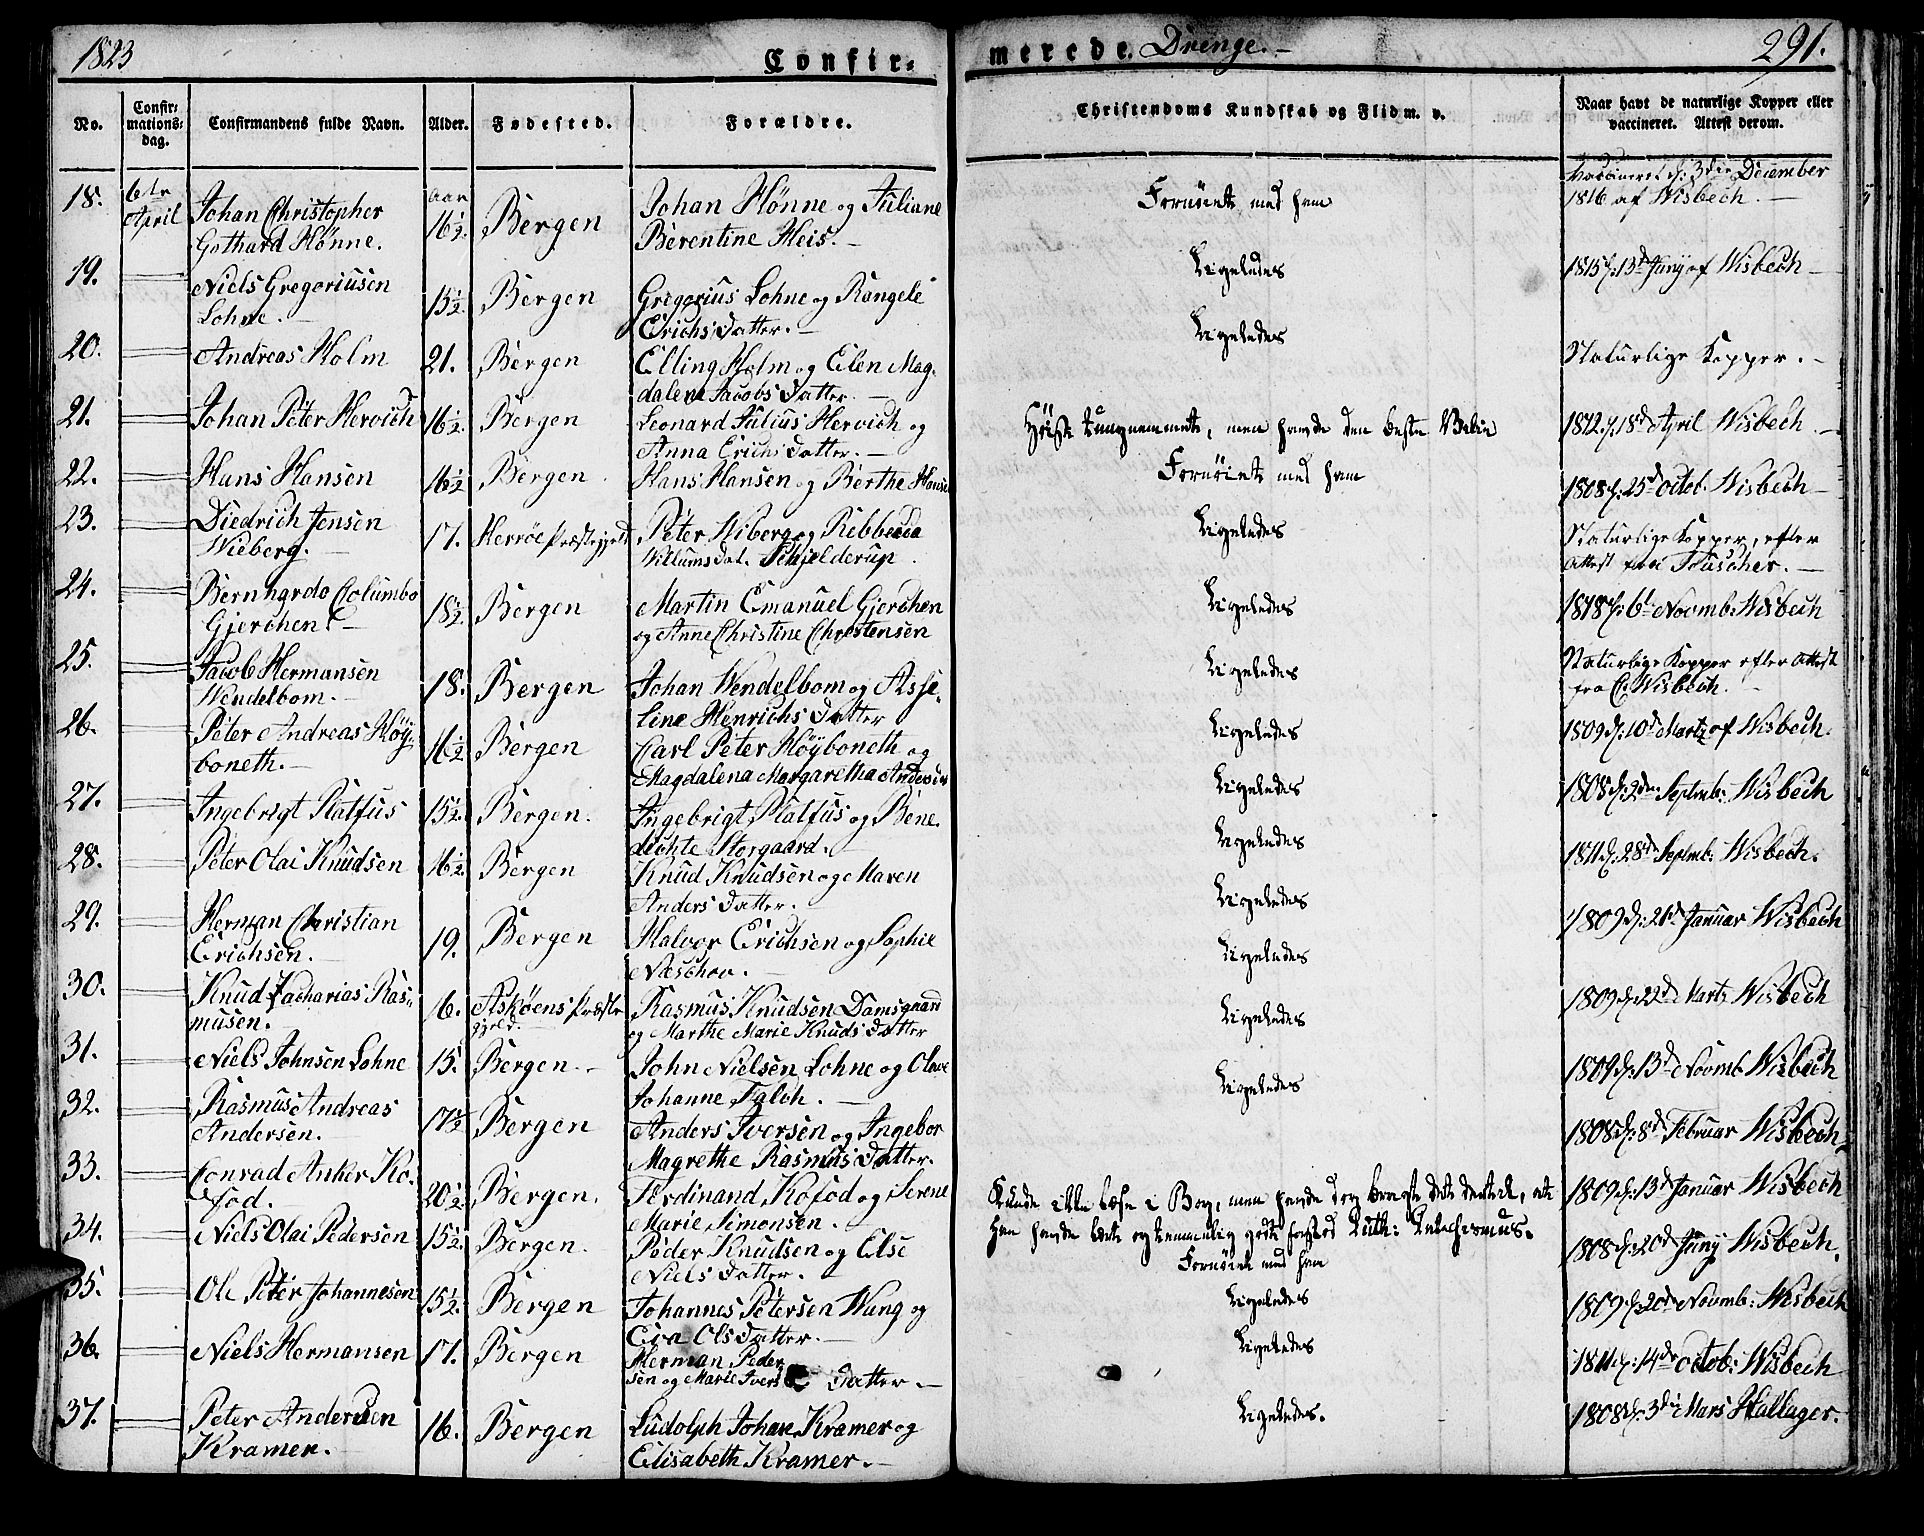 1823 Confir- merede. Drenge.- 291.
No. Confir-mations-dag. Confirmandens fulde Navn. Alder. Fødested. Forældre. Christendoms Kundskab og Flid m. v. Naar havt de naturlige Kopper eller vaccineret. Attest derom.
18. 6te April Johan Christopher Gothard Hønne. Aar 16½. Bergen Johan Hønne og Juliane Berentine Heis.- Fornøiet med ham Vaccineret d: 3die December 1816 af Wisbech.-
19. Niels Gregoriusen Lohne.- 15½. Bergen Gregorius Lohne og Rangele Erichs Datter.- Ligeledes 1815 d: 13d Junÿ af Wisbech-
20. Andreas Holm 21. Bergen Elling Holm og Elen Mag-dalena Jacobs Datter.- Ligeledes Naturlige Kopper.-
21. Johan Peter Hervich 16½. Bergen Leonard Julius Hervich og Anna Erichs Datter.- Høist tungnemmet, men havde den beste Villie 1812 d: 18d April Wisbech.-
22. Hans Hansen 16½ Bergen Hans Hansen og Berthe Hanse Fornøiet med ham 1808 d: 25d octob. Wisbech-
23. Diedrich Jensen Wieberg.- 17. Herröe Præstegjeld Peter Wiberg og Ribbecka Willumsdat. Schjelderup. Ligeledes Naturlige Kopper, efter Attest fra Fuscher.-
24. Bernhardo Columbo Gjerchen.- 18½ Bergen Martin Emanuel Gjerchen og Anne Christine Chrestensen Ligeledes 1818 d: 6t Novmb. Wisbech
25. Jacob Hermansen Wendelbom.- 18. Bergen Johan Wendelbom og Asse-line Henrichs Datter Ligeledes Naturlige Kopper efter Attest fra C. Wisbech.-
26. Peter Andreas Høÿ-boneth.- 16½ Bergen Carl Peter Høÿboneth og Magdalena Margaretha Andersen Ligeledes 1809 d: 10d Martz af Wisbech.
27. Ingebrigt Platfus 15½. Bergen. Ingebrigt Platfus og Bene-dichte Storgaard.- Ligeledes 1808 d: 2den Septmb: Wisbech
28. Peter Olai Knudsen 16½. Bergen Knud Knudsen og Maren Anders Datter.- Ligeledes 1811 d: 28de Septmb: Wisbech.
29. Herman Christian Erichsen.- 19. Bergen Halvor Erichsen og Sophie Næschou.- Ligeledes 1809 d: 21d Januar Wisbech
30. Knud Zacharias Ras-musen. 16. Askøens Præste gjeld.- Rasmus Knudsen Damsgaard og Marthe Marie Knuds Datter Ligeledes 1809 d: 22d Marts Wisbech
31. Niels Johnsen Lohne 15. Bergen.- John Nielsen Lohne og Olave Johanne Falch.- Ligeledes 1809 d: 13d Novmb. Wisbech
32. Rasmus Andreas Andersen.- 17½ Bergen Anders Iversen og Ingebor Magrethe Rasmus Datter. Ligeledes 1808 d: 8d Februar Wisbech
33. Conrad Anker Ko-fod.- 20½. Bergen. Ferdinand Kofod og Serene Marie Simonsen.- Kunde ikke læse i Bog, men havde dog bragt det dertil, at han havde lært og temmelig godt forstod Luth: Catechismus. 1809 d: 13d Januar Wisbech
34. Niels Olai Pedersen 15½. Bergen. Peder Knudsen og Else Niels Datter.- Fornøiet med ham 1808 d: 20d Junÿ Wisbech.
35. Ole Peter Johannesen 15½. Bergen Johannes Petersen Wung og Eva Ols Datter.- Ligeledes 1809 d: 20d Novmb: Wisbech
36. Niels Hermansen 17. Bergen Herman Peder sen og Marie Ivers Datter.- Ligeledes 1811 d: 14de octob: Wisbech
37. Peter Andersen Kramer.- 16. Bergen Ludolph Johan Kramer og Elisabeth Kramer.- Ligeledes. 1808 d: 3die Mars Hallager.